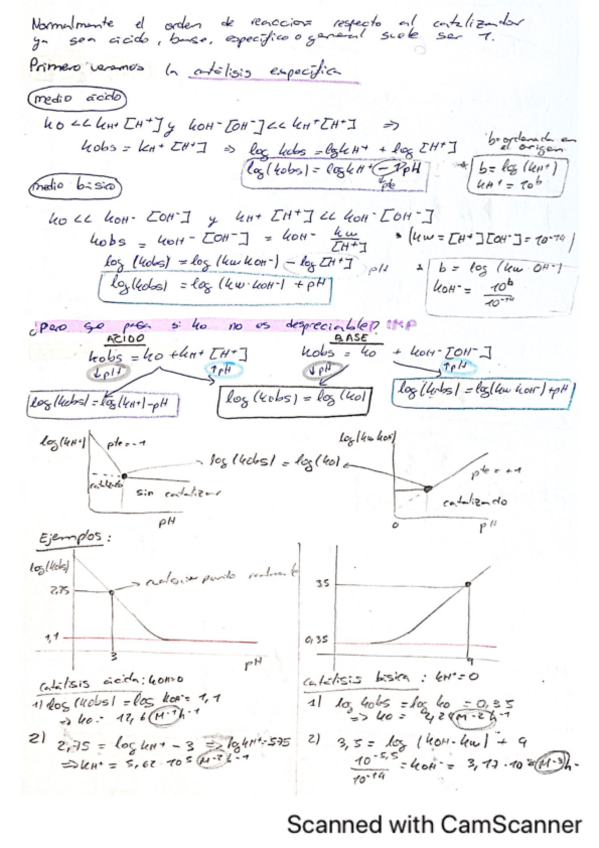 Normalmente el orden de reacción respecto al catalizador
ya sea ácido, base, específico o general suele ser 1.
Primero veremos la catálisis específica
medio ácido
k0 << kH+ [H+] y kOH- [OH-] << kH+ [H+] ⇒
kobs = kH+ [H+] ⇒ log kobs = log kH+ + log [H+]
log(kobs) = log kH+ - 1pH
pte
b = ordenada en el origen
* b = log (kH+)
kH+ = 10^b
medio básico
k0 << kOH- [OH-] y kH+ [H+] << kOH- [OH-]
kobs = kOH- [OH-] = kOH- kw/[H+] * (kw = [H+][OH-] = 10^-14)
log (kobs) = log (kw kOH-) - log [H+] pH
log(kobs) = log (kw·kOH-) + pH
* b = log (kw OH-)
kOH- = 10^b/10^-14
¿Pero qué pasa si k0 no es despreciable? IMP
ÁCIDO
kobs = k0 + kH+ [H+]
↓pH ↑pH
BASE
kobs = k0 + kOH- [OH-]
↓pH ↑pH
log(kobs) = log(kH+) - pH
log (kobs) = log (k0)
log(kobs) = log(kw kOH-) + pH
log(kH+)
pte = -1
catalizado
sin catalizar
pH
log (kobs) = log (k0)
log(kw kOH)
pte = +1
catalizado
0
pH
Ejemplos:
log(kobs)
2,75
cualquier punto
1,1
3
pH
3,5
0,35
9
catálisis ácida: kOH=0
1) log (kobs) = log kOH- = 1,1
⇒ k0 = 12,6 M-1 h-1
2) 2,75 = log kH+ - 3 ⇒ log kH+ = 5,75
⇒ kH+ = 5,62·10^5 M-2 h-1
catálisis básica: kH+ = 0
1) log kobs = log k0 = 0,35
⇒ k0 = 2,24 M-2 h-1
2) 3,5 = log (kOH- kw) + 9
10^-5,5/10^-14 = kOH- = 3,17·10 M-3 h-
Scanned with CamScanner